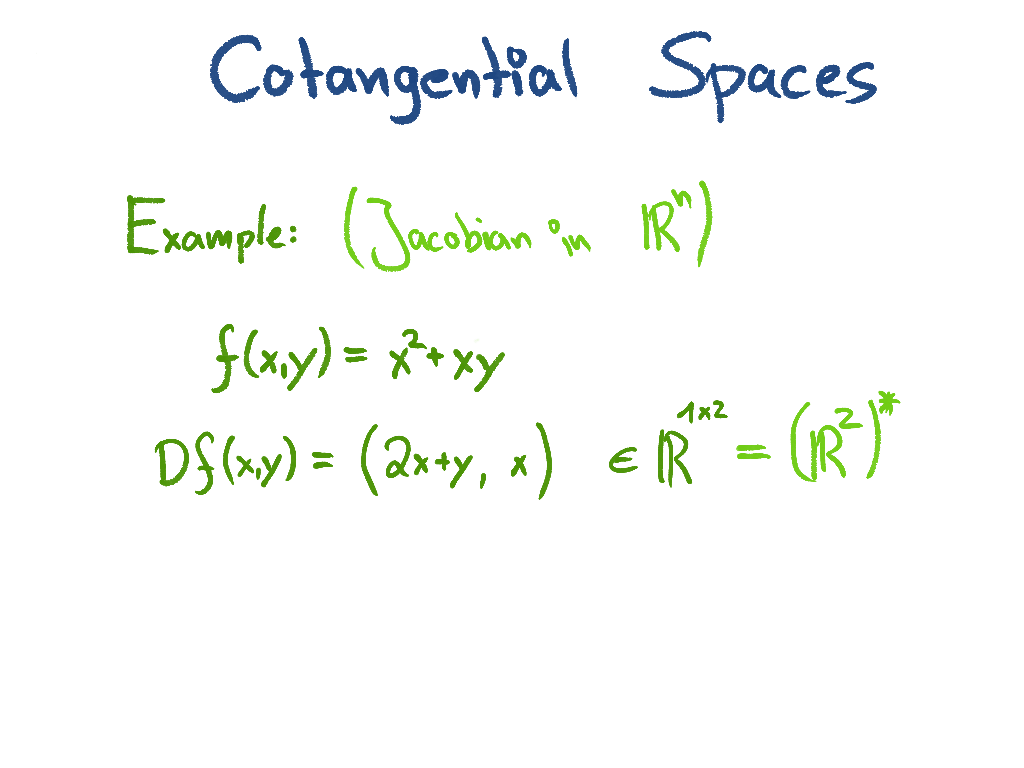 Cotangential Spaces
Example: (Jacobian in ℝⁿ)
f(x,y) = x² + xy
Df(x,y) = (2x+y, x) ∈ ℝ¹ˣ² = (ℝ²)*